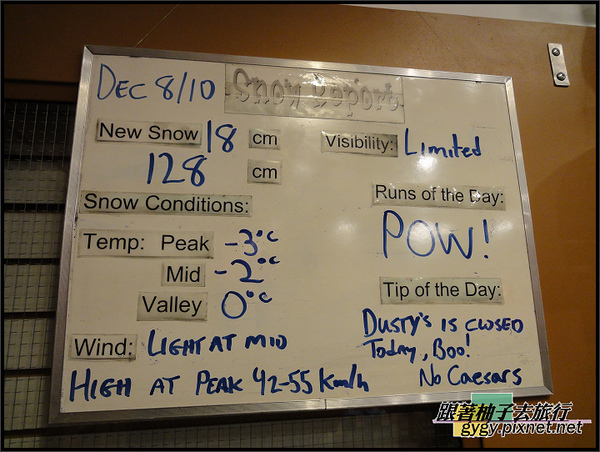 DEC 8/10 Snow Report
New Snow 18 cm
128 cm
Snow Conditions:
Temp: Peak -3°C
Mid -2°C
Valley 0°C
Wind: LIGHT AT MID
HIGH AT PEAK 42-55 Km/h
Visibility: Limited
Runs of the Day:
POW!
Tip of the Day:
DUSTY'S IS CLOSED
TODAY, BOO!
NO CAESARS
跟著柚子去旅行
gygy.pixnet.net